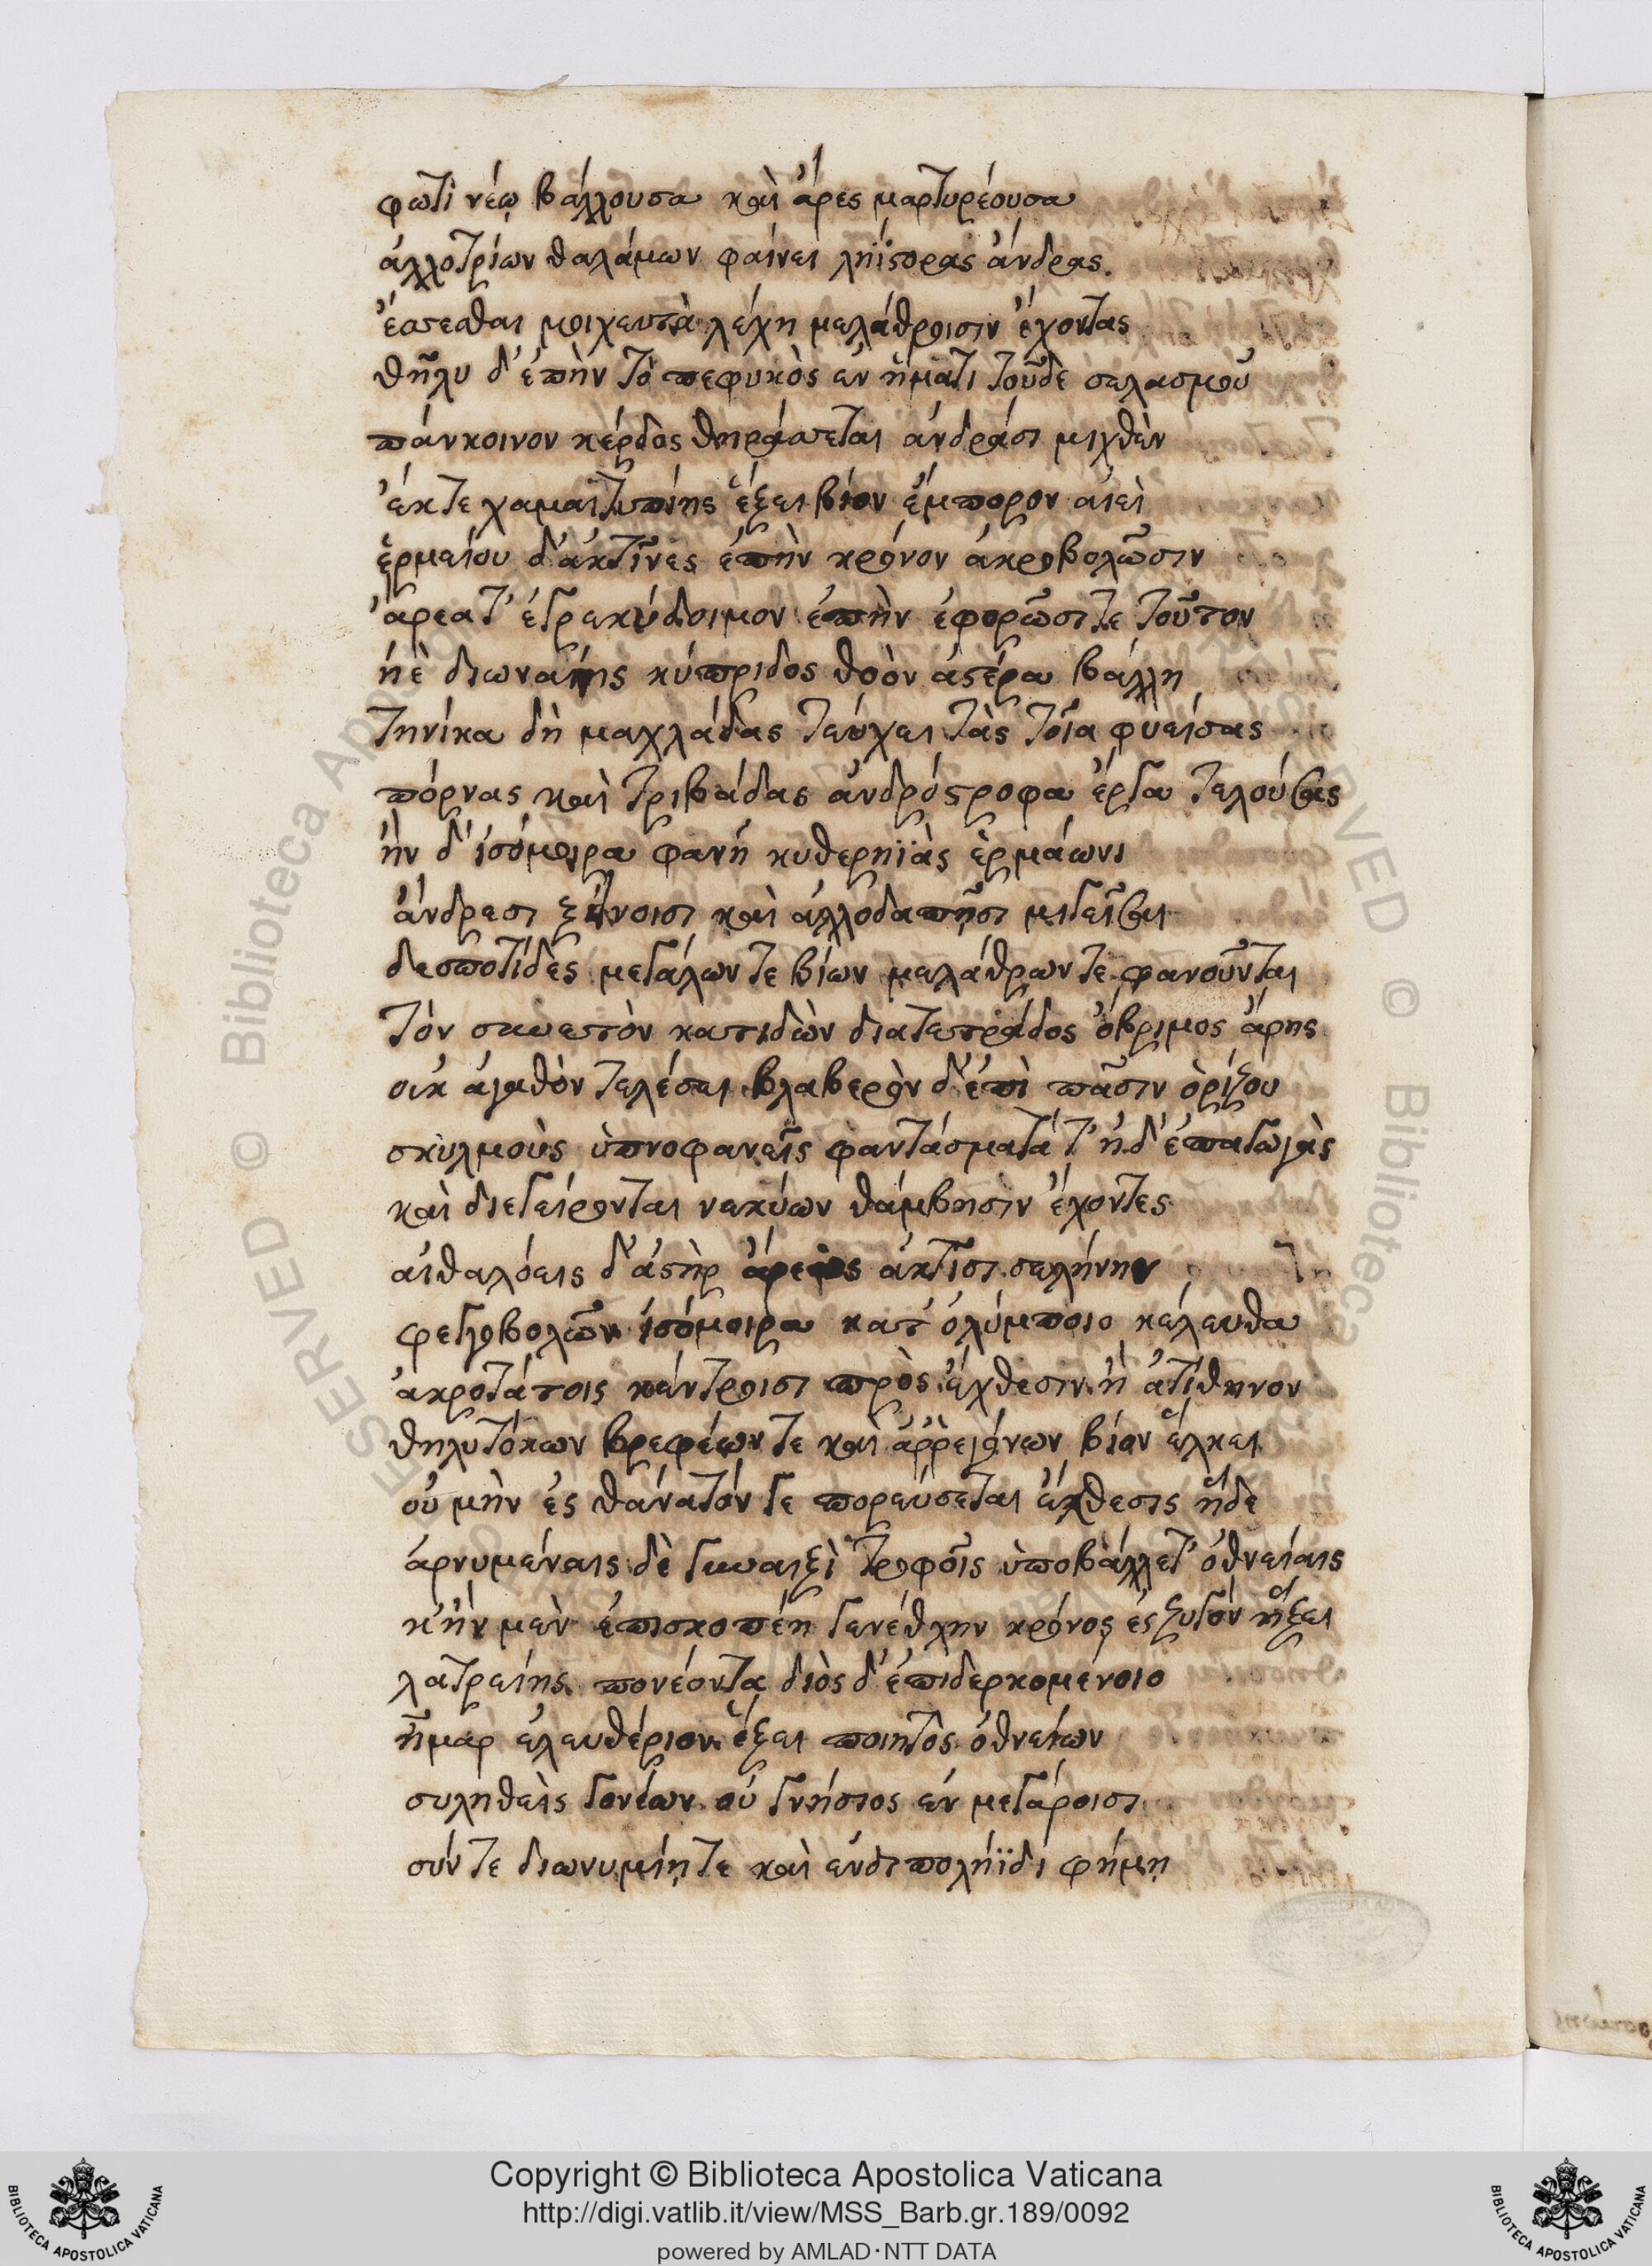 φωτὶ νέῳ βάλλουσα καὶ ἄρες μαρτυρέουσα
ἀλλοτρίων θαλάμων φαίνει ληΐστορας ἄνδρας.
ἔσσεσθαι μοιχευτὰ λέχη μελάθροισιν ἔχοντας
θῆλυ δ' ἐπὴν τὸ πεφυκὸς εν ἤματι τοῦδὲ σελασμοῦ
πάνκοινον κέρδος θηράσεται ἀνδράσι μιχθὲν
ἔκτε χαμαιτυπίης ἕξει βίον ἔμπορον αἰεὶ
ἑρμείου δ' ἀκτῖνες ἐπὴν κρόνον ἀκροβολῶσιν
ἄρεα τ' ἐγρεκύδοιμον ἐπὴν ἐφορῶσι τε τοῦτον
ἠὲ διωναίης κύπριδος θοὸν ἀστέρα βάλλη
τηνίκα δὴ μαχλάδας τεύχει τὰς τοῖα φυείσας
πόρνας καὶ τριβάδας ἀνδρόστροφα ἔργα τελούσας
ἢν δ' ἰσόμοιρα φανῇ κυθερηϊὰς ἑρμάωνι
ἄνδρεσι ξείνοισι καὶ ἀλλοδαπῆσι μιγεῖσαι
δεσπότιδες μεγάλων τε βίων μελάθρων τε φανοῦνται
τὸν σκυεστὸν κατιδὼν διατετράδος ὄβριμος ἄρης
οὐκ ἀγαθὸν τελέσει βλαβερὸν δ' ἐπὶ πᾶσιν ὁρίζου
σκυλμοὺς ὑπνοφανεῖς φαντάσματά τ' ἠδ' ἐπαγωγὰς
καὶ διεγείρονται νεκύων θάμβησιν ἔχοντες
αἰθαλόεις δ' ἀστὴρ ἄρεος ἀκτῖσι σελήνην
φεγγοβολῶν ἰσόμοιρα κατ' ὀλύμποιο κέλευθα
ἀκροτάτοις κέντροισι πρὸς ἔχθεσιν ἢ ἀτίθηνον
θηλυτόκων βρεφέων τε καὶ ἀρρειγόνων βίον ἕλκει
οὐ μὴν ἐς θάνατόν γε πορεύσεται ἔκθεσις ἥδε
ἀρνυμέναις δὲ γυναιξὶ τροφοῖς ὑποβάλλετ' ὀθνείαις
κἢν μὲν ἐπισκοπέη γενέθλην κρόνος ἐς ζυγὸν ἥξει
λατρείης πονέοντα διὸς δ' ἐπιδερκομένοιο
ἦμαρ ἐλευθέριον ἕξει ποιητὸς ὀθνείων
συληθεὶς γονέων οὐ γνήσιος ἐν μεγάροισι
σύν τε διωνυμίῃ τε καὶ ἐνδιποληΐδι φήμῃ
Copyright © Biblioteca Apostolica Vaticana
http://digi.vatlib.it/view/MSS_Barb.gr.189/0092
powered by AMLAD·NTT DATA